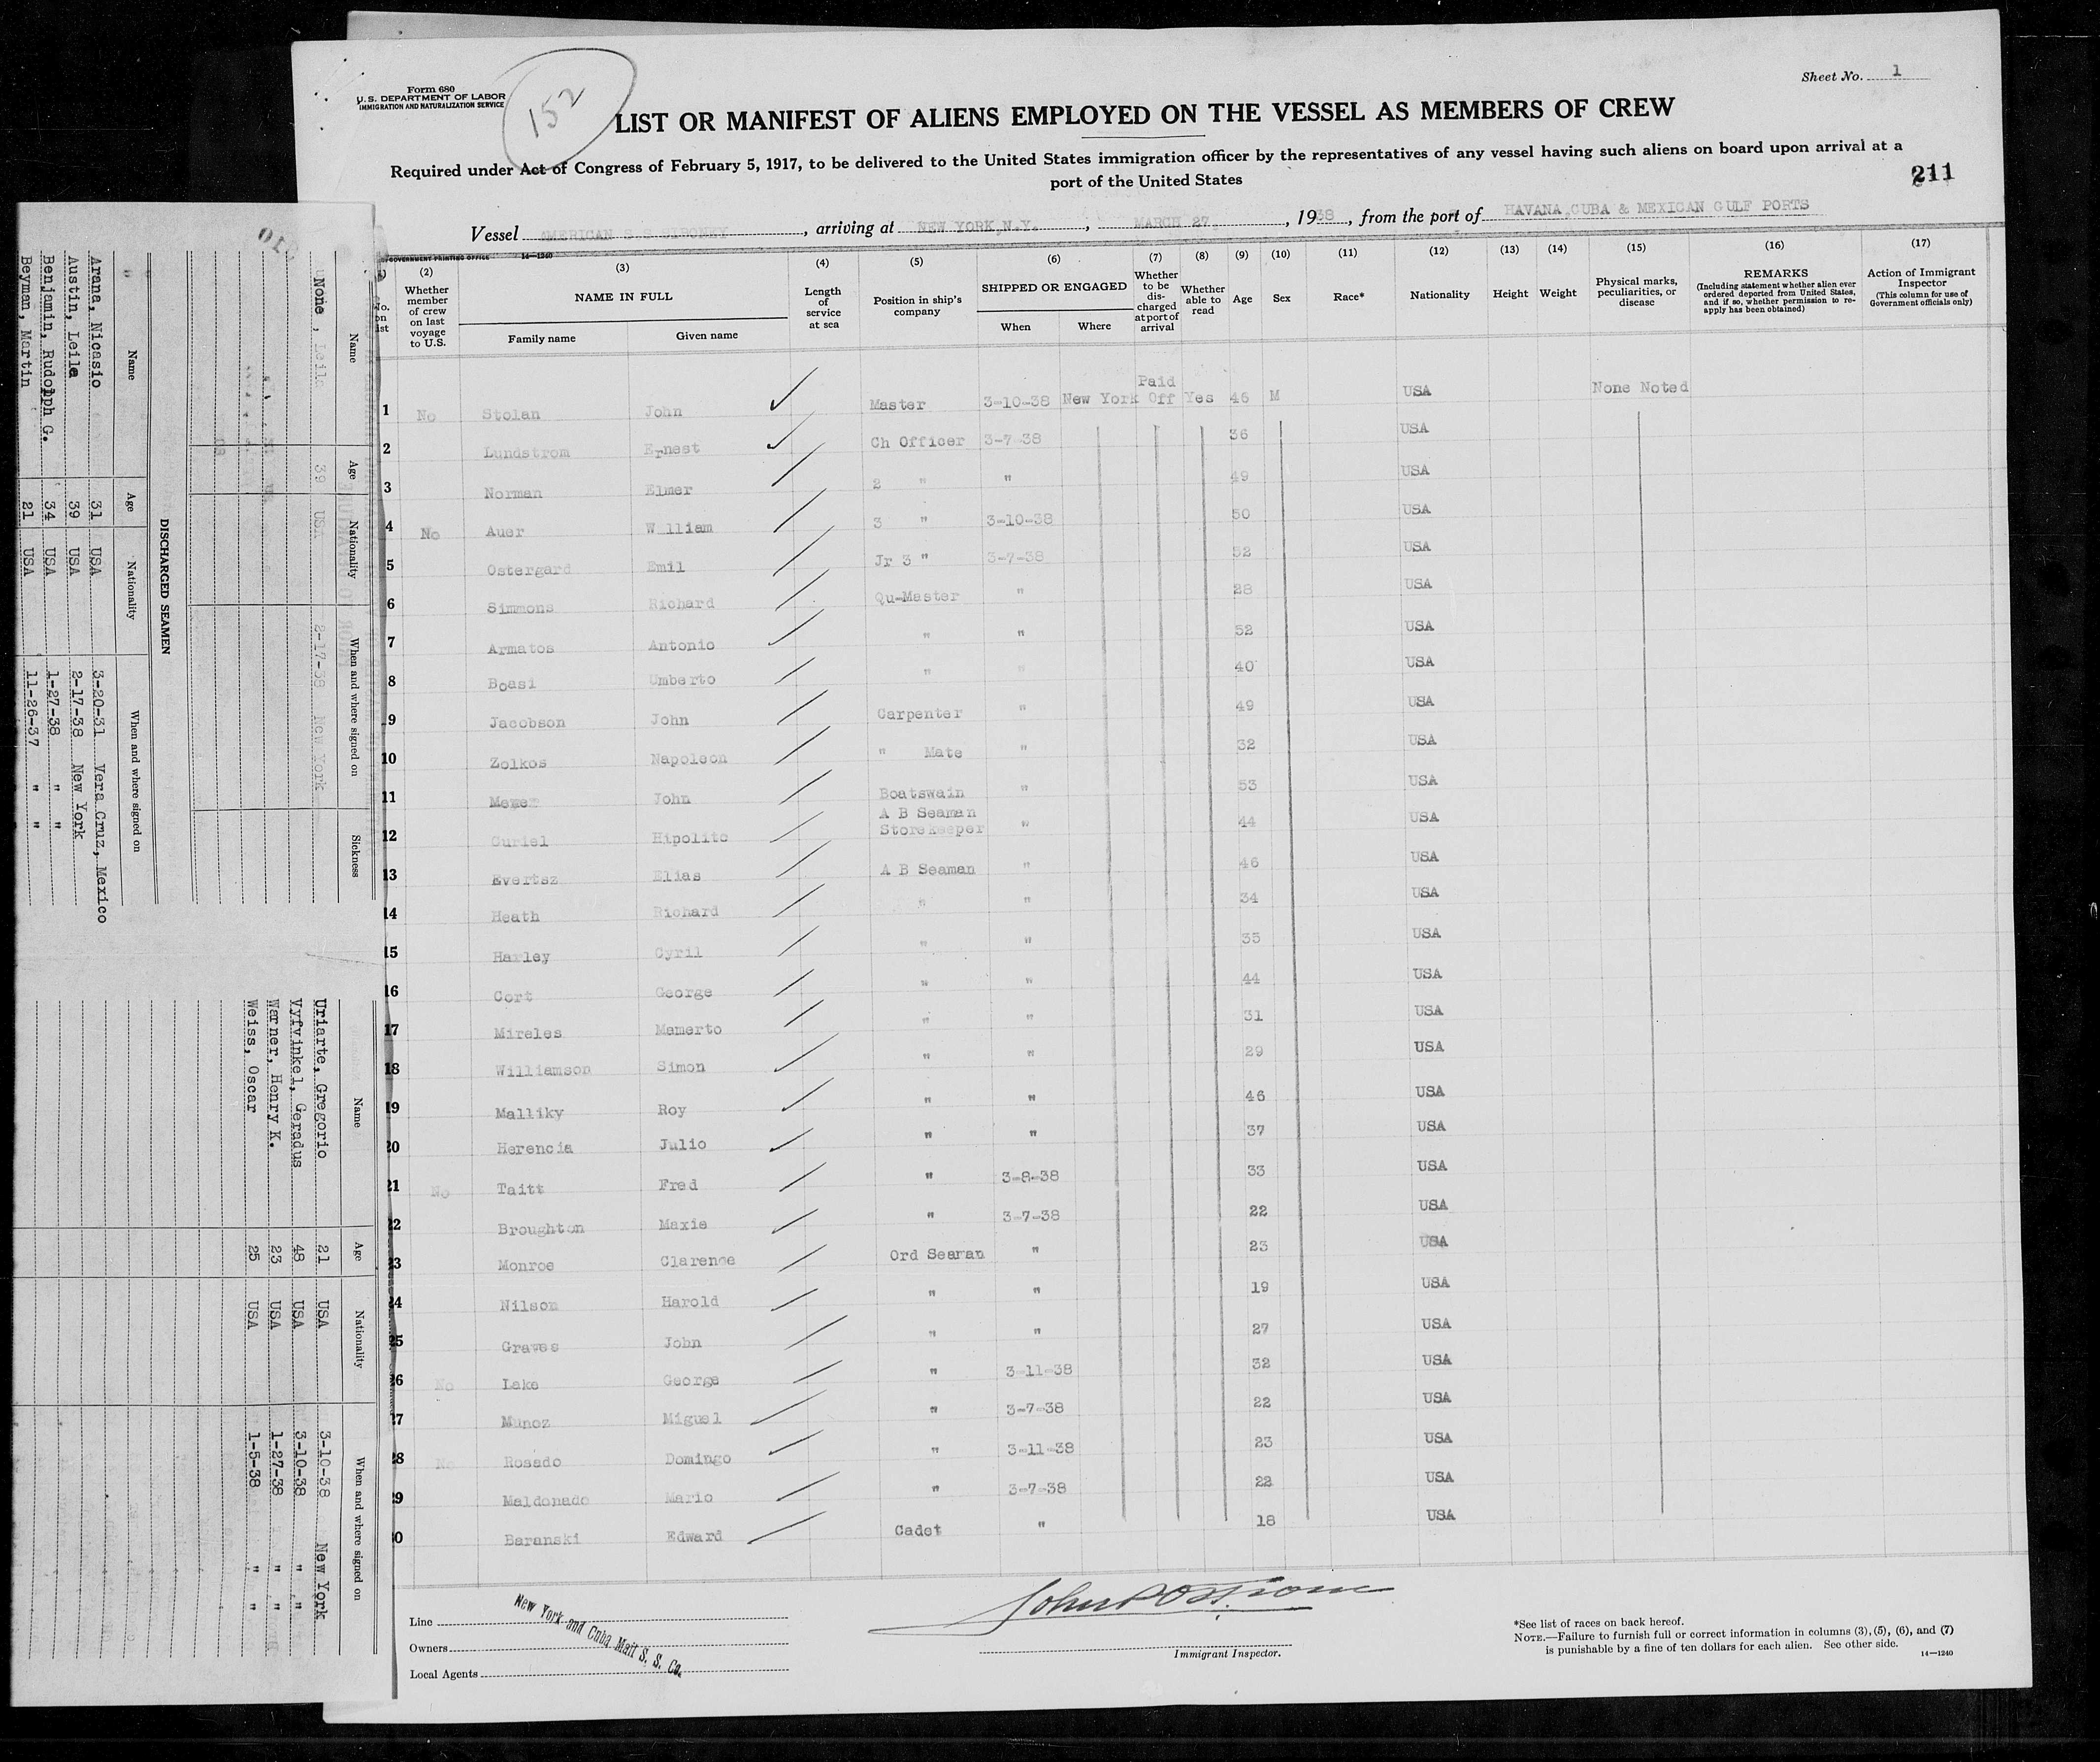 Form 680
U.S. DEPARTMENT OF LABOR
IMMIGRATION AND NATURALIZATION SERVICE
152
Sheet No. 1
LIST OR MANIFEST OF ALIENS EMPLOYED ON THE VESSEL AS MEMBERS OF CREW
Required under Act of Congress of February 5, 1917, to be delivered to the United States immigration officer by the representatives of any vessel having such aliens on board upon arrival at a
port of the United States
211
Vessel AMERICAN S S SIBONEY, arriving at NEW YORK,N.Y., MARCH 27, 1938, from the port of HAVANA,CUBA & MEXICAN GULF PORTS
GOVERNMENT PRINTING OFFICE 14—1240
(2) (3) (4) (5) (6) (7) (8) (9) (10) (11) (12) (13) (14) (15) (16) (17)
Whether member of crew on last voyage to U.S. NAME IN FULL Family name Given name Length of service at sea Position in ship's company SHIPPED OR ENGAGED When Where Whether to be discharged at port of arrival Whether able to read Age Sex Race* Nationality Height Weight Physical marks, peculiarities, or disease REMARKS (Including statement whether alien ever ordered deported from United States, and if so, whether permission to reapply has been obtained) Action of Immigrant Inspector (This column for use of Government officials only)
1 No Stolan John Master 3-10-38 New York Paid Off Yes 46 M USA None Noted
2 Lundstrom Ernest Ch Officer 3-7-38 36 USA
3 Norman Elmer 2 " " 49 USA
4 No Auer William 3 " 3-10-38 50 USA
5 Ostergard Emil Jr 3 " 3-7-38 52 USA
6 Simmons Richard Qu-Master " 28 USA
7 Armatos Antonio " " 52 USA
8 Boasi Umberto " " 40 USA
9 Jacobson John Carpenter " 49 USA
10 Zolkos Napoleon " Mate " 32 USA
11 John Boatswain " 53 USA
12 Curiel Hipolito A B Seaman Storekeeper " 44 USA
13 Evertsz Elias A B Seaman " 46 USA
14 Heath Richard " " 34 USA
15 Harley Cyril " " 35 USA
16 Cort George " " 44 USA
17 Mireles Mamerto " " 31 USA
18 Williamson Simon " " 29 USA
19 Malliky Roy " " 46 USA
20 Herencia Julio " " 37 USA
21 No Taitt Fred " 3-8-38 33 USA
22 Broughton Maxie " 3-7-38 22 USA
23 Monroe Clarence Ord Searan " 23 USA
24 Nilson Harold " " 19 USA
25 Graves John " " 27 USA
26 No Lake George " 3-11-38 32 USA
27 Munoz Miguel " 3-7-38 22 USA
28 No Rosado Domingo " 3-11-38 23 USA
29 Maldonado Mario " 3-7-38 22 USA
30 Baranski Edward Cadet " 18 USA
Line
Owners
Local Agents
New York and Cuba Mail S. S. Co.
Immigrant Inspector.
*See list of races on back hereof.
NOTE.—Failure to furnish full or correct information in columns (3), (5), (6), and (7)
is punishable by a fine of ten dollars for each alien. See other side.
14—1240
Name Age Nationality When and where signed on Sickness
None , Leila 39 USA 2-17-38 New York
DISCHARGED SEAMEN
Name Age Nationality When and where signed on
Arana, Nicasio 31 USA 3-20-31 Vera Cruz, Mexico
Austin, Leila 39 USA 2-17-38 New York
Benjamin, Rudolph G. 34 USA 1-27-38 " "
Beyman, Martin 21 USA 11-26-37 " "
Name Age Nationality When and where signed on
Uriarte, Gregorio 21 USA 3-10-38 New York
Vyfvinkel, Geradus 48 USA 3-10-38 " "
Warner, Henry K. 23 USA 1-27-38 " "
Weiss, Oscar 25 USA 1-5-38 " "